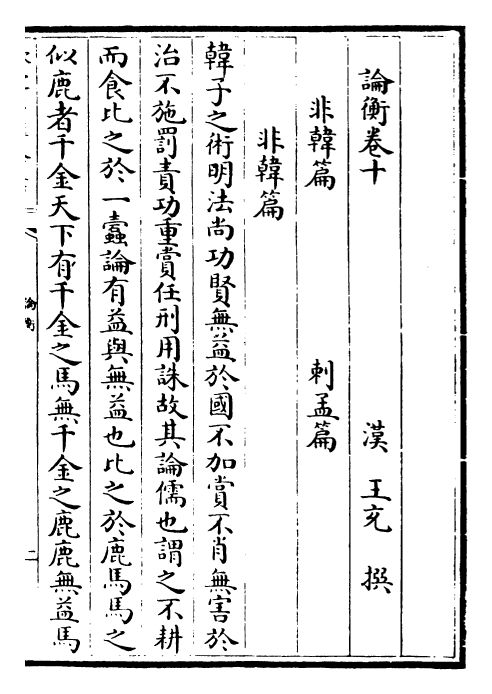 論衡卷十
漢　王充　撰
非韓篇　刺孟篇
非韓篇
韓子之術明法尚功賢無益於國不加賞不肖無害於
治不施罰責功重賞任刑用誅故其論儒也謂之不耕
而食比之於一蠹論有益與無益也比之於鹿馬馬之
似鹿者千金天下有千金之馬無千金之鹿鹿無益馬
論衡
二